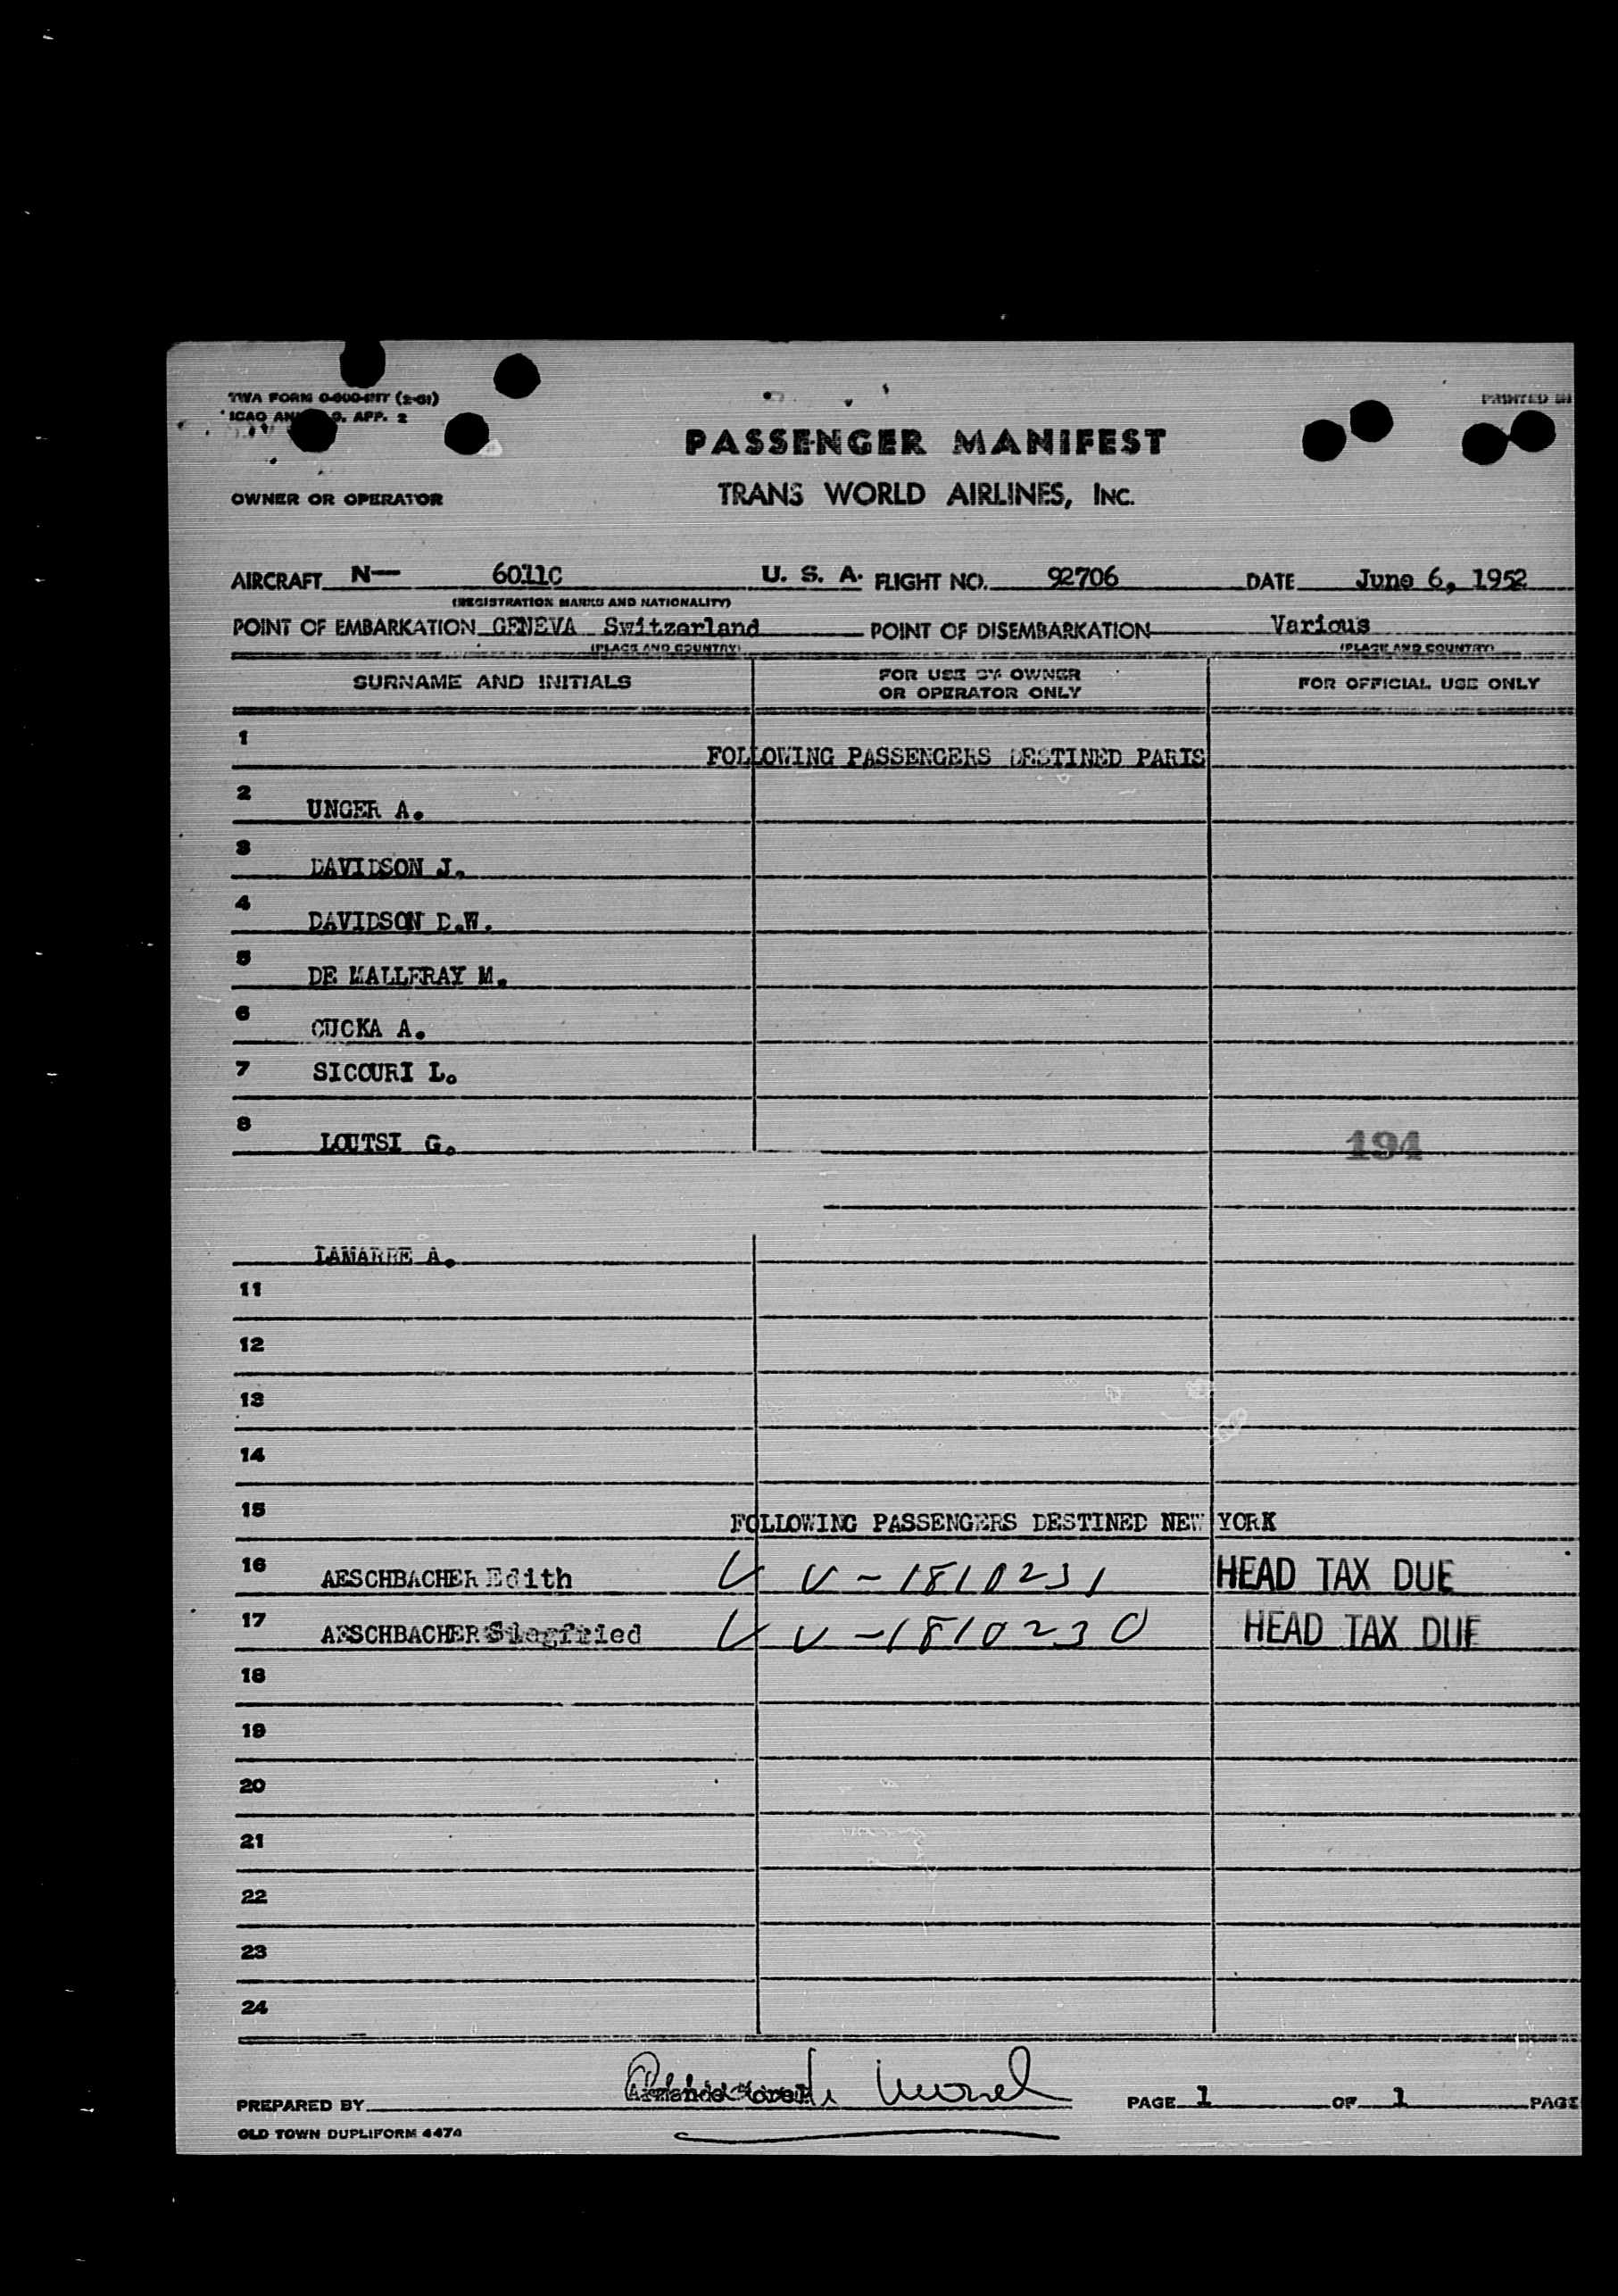 TWA FORM
ICAO APP. 2
PRINTED IN
PASSENGER MANIFEST
OWNER OR OPERATOR
TRANS WORLD AIRLINES, INC.
AIRCRAFT N— 6011C U. S. A. FLIGHT NO. 92706 DATE June 6, 1952
(REGISTRATION MARKS AND NATIONALITY)
POINT OF EMBARKATION GENEVA Switzerland POINT OF DISEMBARKATION Various
(PLACE AND COUNTRY) (PLACE AND COUNTRY)
SURNAME AND INITIALS FOR USE BY OWNER OR OPERATOR ONLY FOR OFFICIAL USE ONLY
1 FOLLOWING PASSENGERS DESTINED PARIS
2 UNGER A.
3 DAVIDSON J.
4 DAVIDSON D.W.
5 DE MALLERAY M.
6 CUCKA A.
7 SICOURI L.
8 LOUTSI G.
194
LAMARRE A.
11
12
13
14
15 FOLLOWING PASSENGERS DESTINED NEW YORK
16 AESCHBACHER Edith V-1810231 HEAD TAX DUE
17 AESCHBACHER Siegfried V-1810230 HEAD TAX DUE
18
19
20
21
22
23
24
PREPARED BY PAGE 1 OF 1 PAGE
OLD TOWN DUPLIFORM 4474